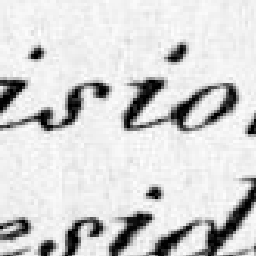 isio
esid